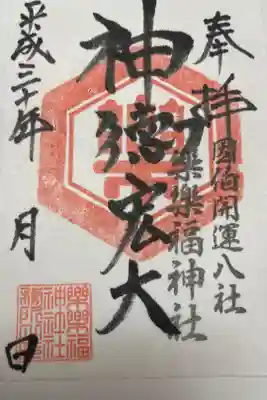 奉拝
因伯開運八社
樂樂福神社
神徳宏大
平成三十年　月　日
樂樂福
神社社